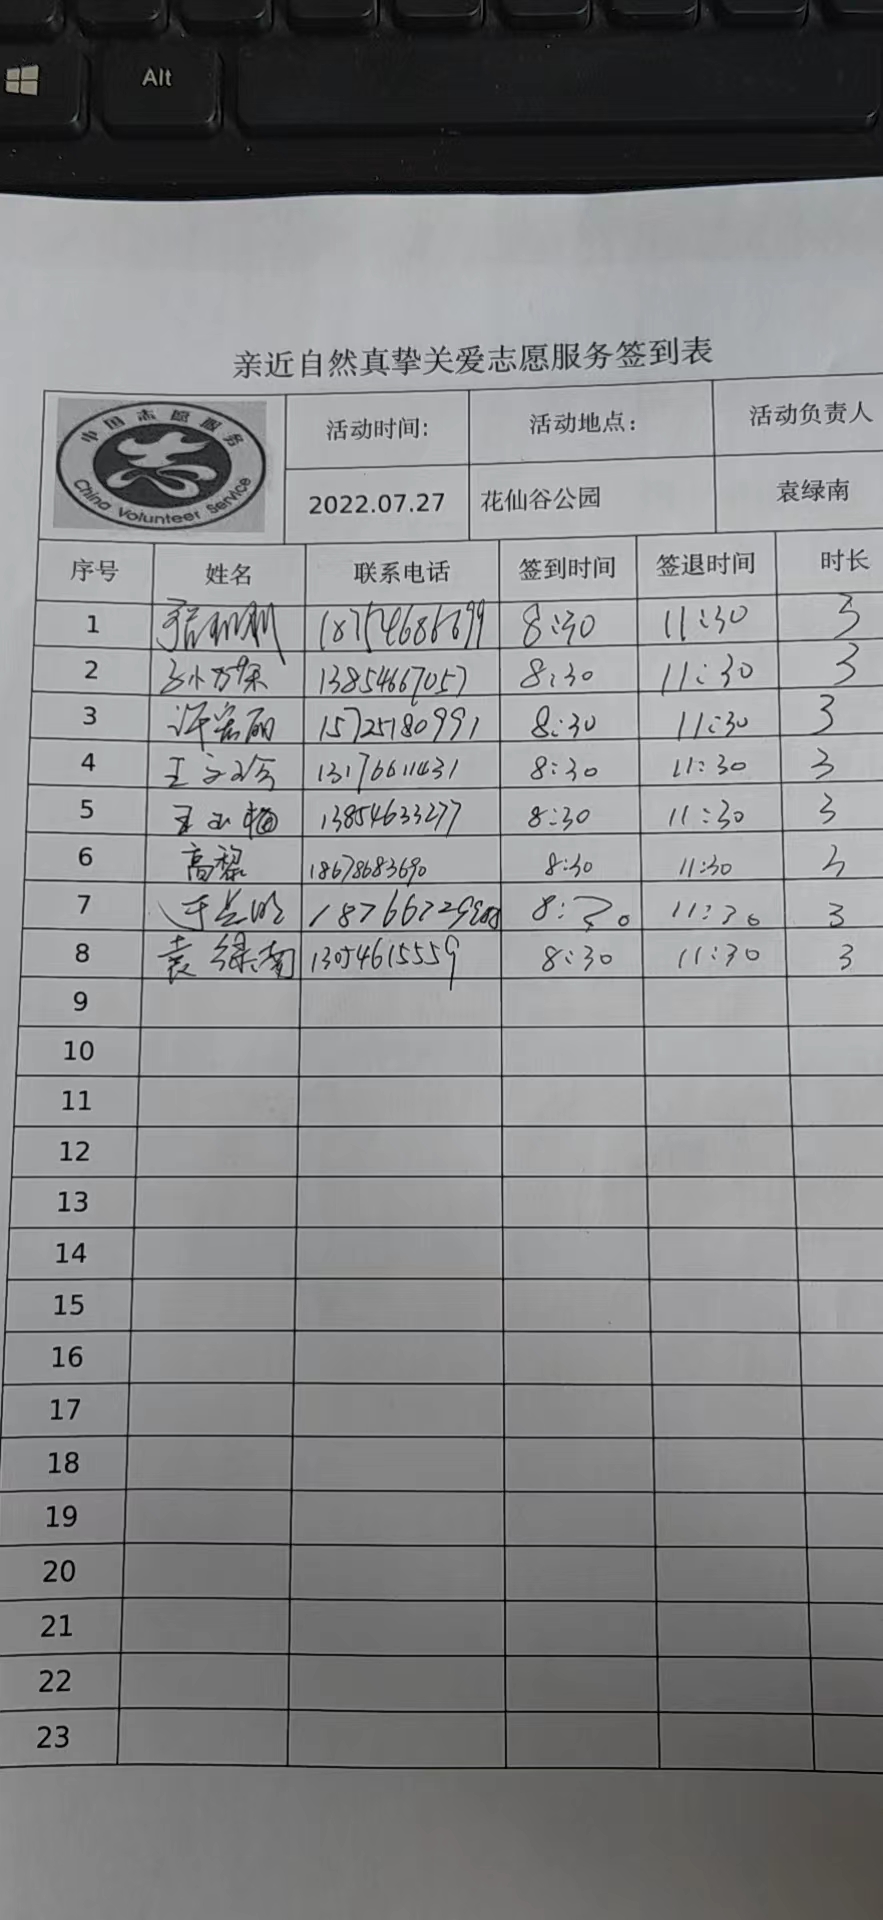 Alt
亲近自然真挚关爱志愿服务签到表
中国志愿服务
China Volunteer Service
活动时间: 活动地点: 活动负责人
2022.07.27 花仙谷公园 袁绿南
序号 姓名 联系电话 签到时间 签退时间 时长
1 8:30 11:30 3
2 13854667057 8:30 11:30 3
3 许宏丽 15725180991 8:30 11:30 3
4 王 13176611431 8:30 11:30 3
5 王玉梅 13854633277 8:30 11:30 3
6 高黎 18678683690 8:30 11:30 3
7 8:30 11:30 3
8 袁绿南 13054615559 8:30 11:30 3
9
10
11
12
13
14
15
16
17
18
19
20
21
22
23